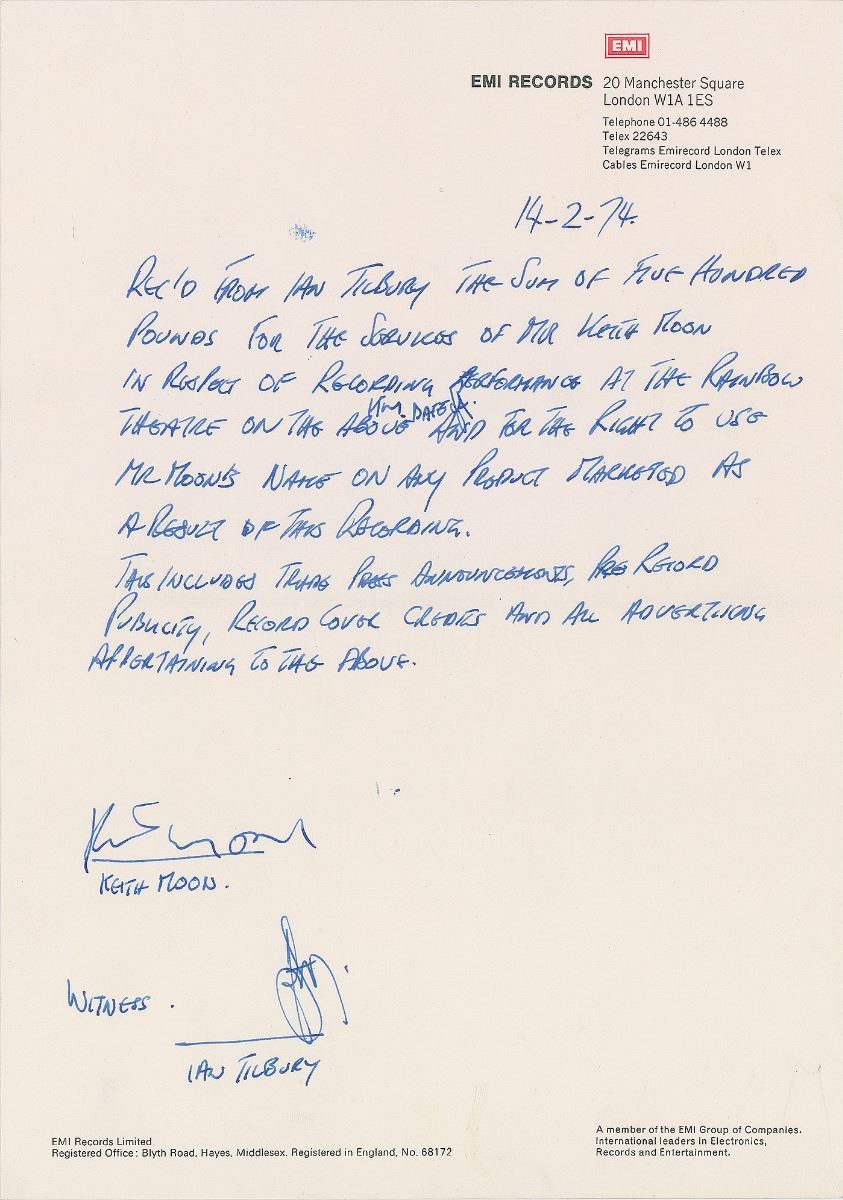 EMI
EMI RECORDS 20 Manchester Square
London W1A 1ES
Telephone 01-486 4488
Telex 22643
Telegrams Emirecord London Telex
Cables Emirecord London W1
14-2-74.
REC'D FROM IAN TILBURY THE SUM OF FIVE HUNDRED
POUNDS FOR THE SERVICES OF MR KEITH MOON
IN RESPECT OF RECORDING PERFORMANCE AT THE RAINBOW
THEATRE ON THE ABOVE DATE AND FOR THE RIGHT TO USE
MR MOON'S NAME ON ANY PRODUCT MARKETED AS
A RESULT OF THIS RECORDING.
THIS INCLUDES TRADE PRESS ANNOUNCEMENTS, RECORD
PUBLICITY, RECORD COVER CREDITS AND ALL ADVERTISING
APPERTAINING TO THE ABOVE.
KEITH MOON.
WITNESS.
IAN TILBURY
EMI Records Limited
Registered Office: Blyth Road, Hayes, Middlesex. Registered in England, No. 68172
A member of the EMI Group of Companies.
International leaders in Electronics,
Records and Entertainment.